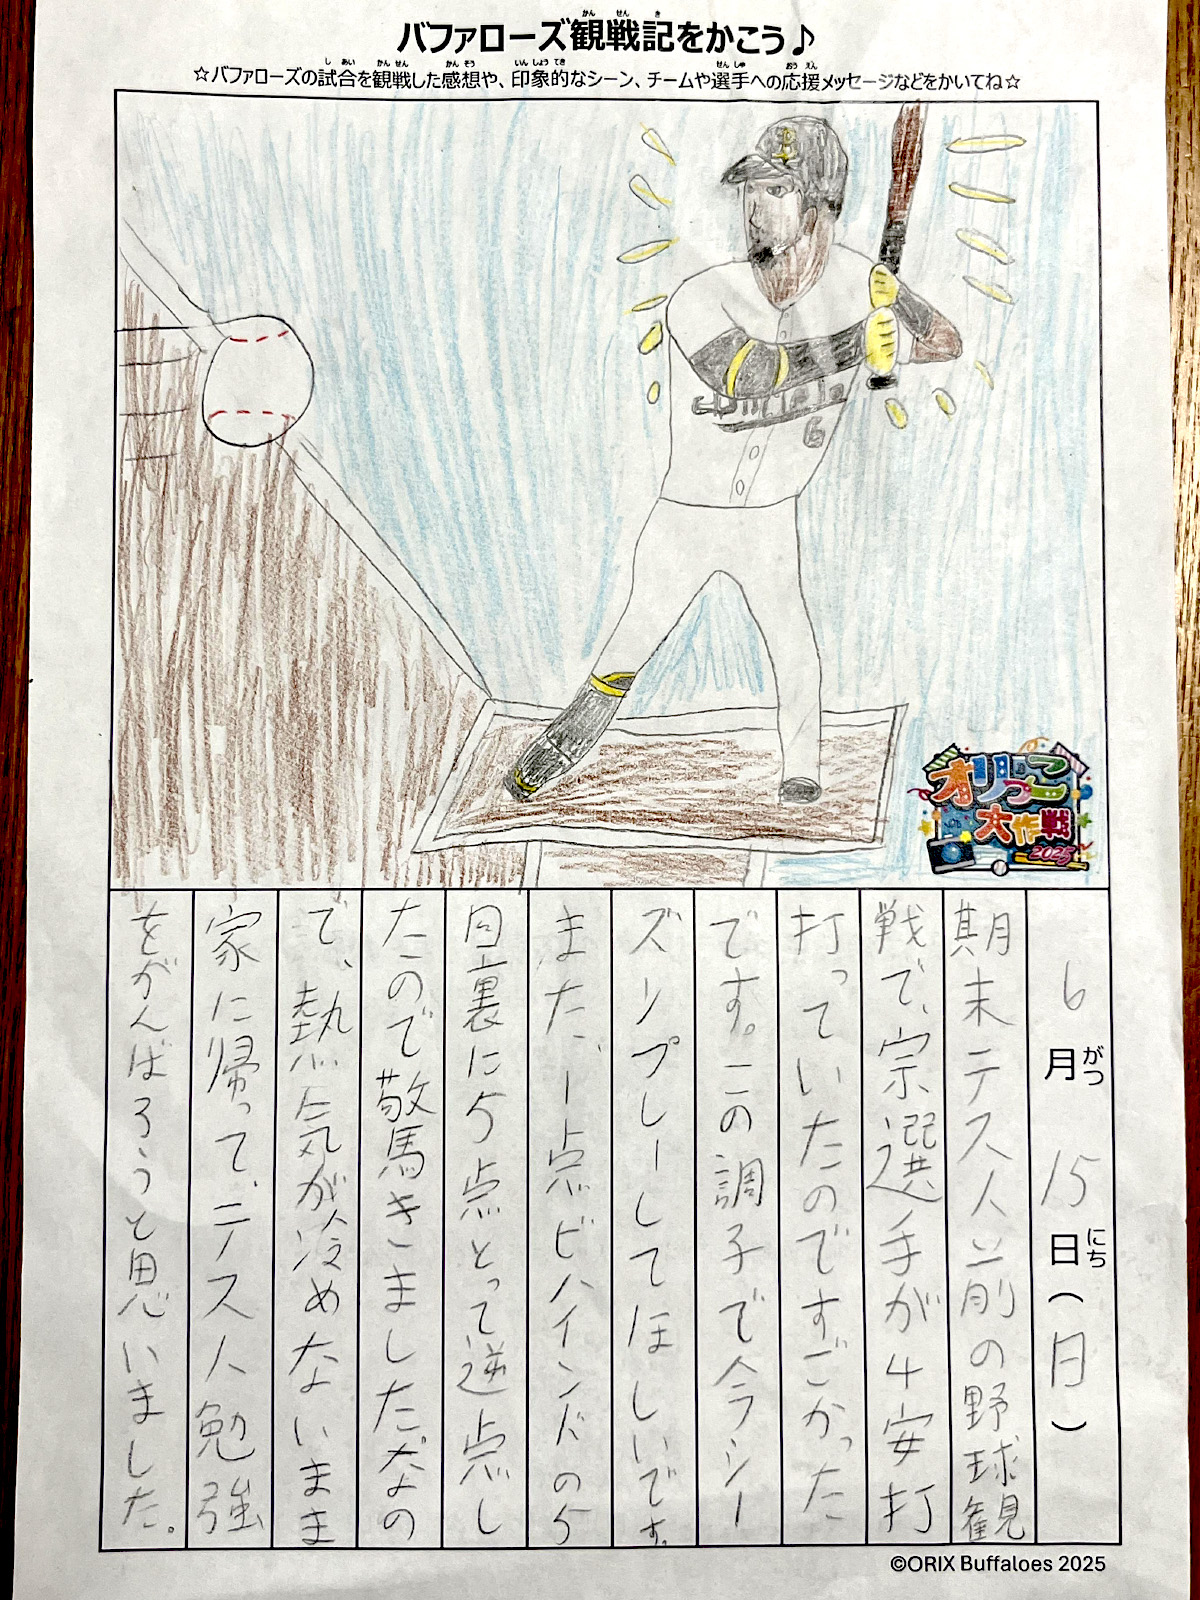 かん せん き
バファローズ観戦記をかこう♪
し あい かん せん かん そう いん しょう てき せん しゅ おう えん
☆バファローズの試合を観戦した感想や、印象的なシーン、チームや選手への応援メッセージなどをかいてね☆
6
大作戦
2025
6月がつ 15日にち(日)
期末テスト前の野球観
戦で、宗選手が4安打
打っていたのですごかった
です。この調子で今シー
ズンプレーしてほしいです。
また、1点ビハインドの5
回裏に5点とって逆点し
たので驚きました。なの
で、熱気が冷めないまま
家に帰って、テスト勉強
をがんばろうと思いました。
©ORIX Buffaloes 2025